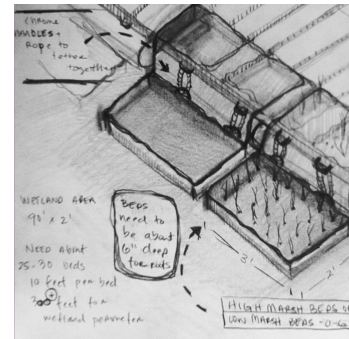 CHROME
HANDLES +
ROPE to
tether
together
WETLAND AREA
90' x 2'
NEED About
25-30 beds
10 feet per bed
300 feet for
wetland perimeter
BEDS
need to
be about
6" deep
for roots
3'
2'
HIGH MARSH BEDS
LOW MARSH BEDS -0-6